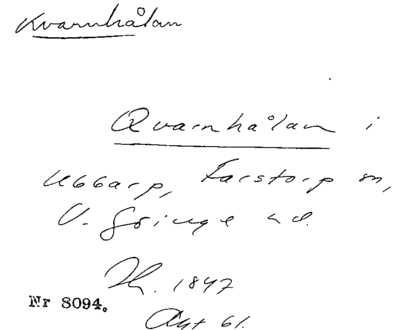 Kvarnhålan
Qvarnhålan i
Ubbarp, Farstorp sn,
V. Göinge hd.
1847
Nr 8094.
Akt 61.